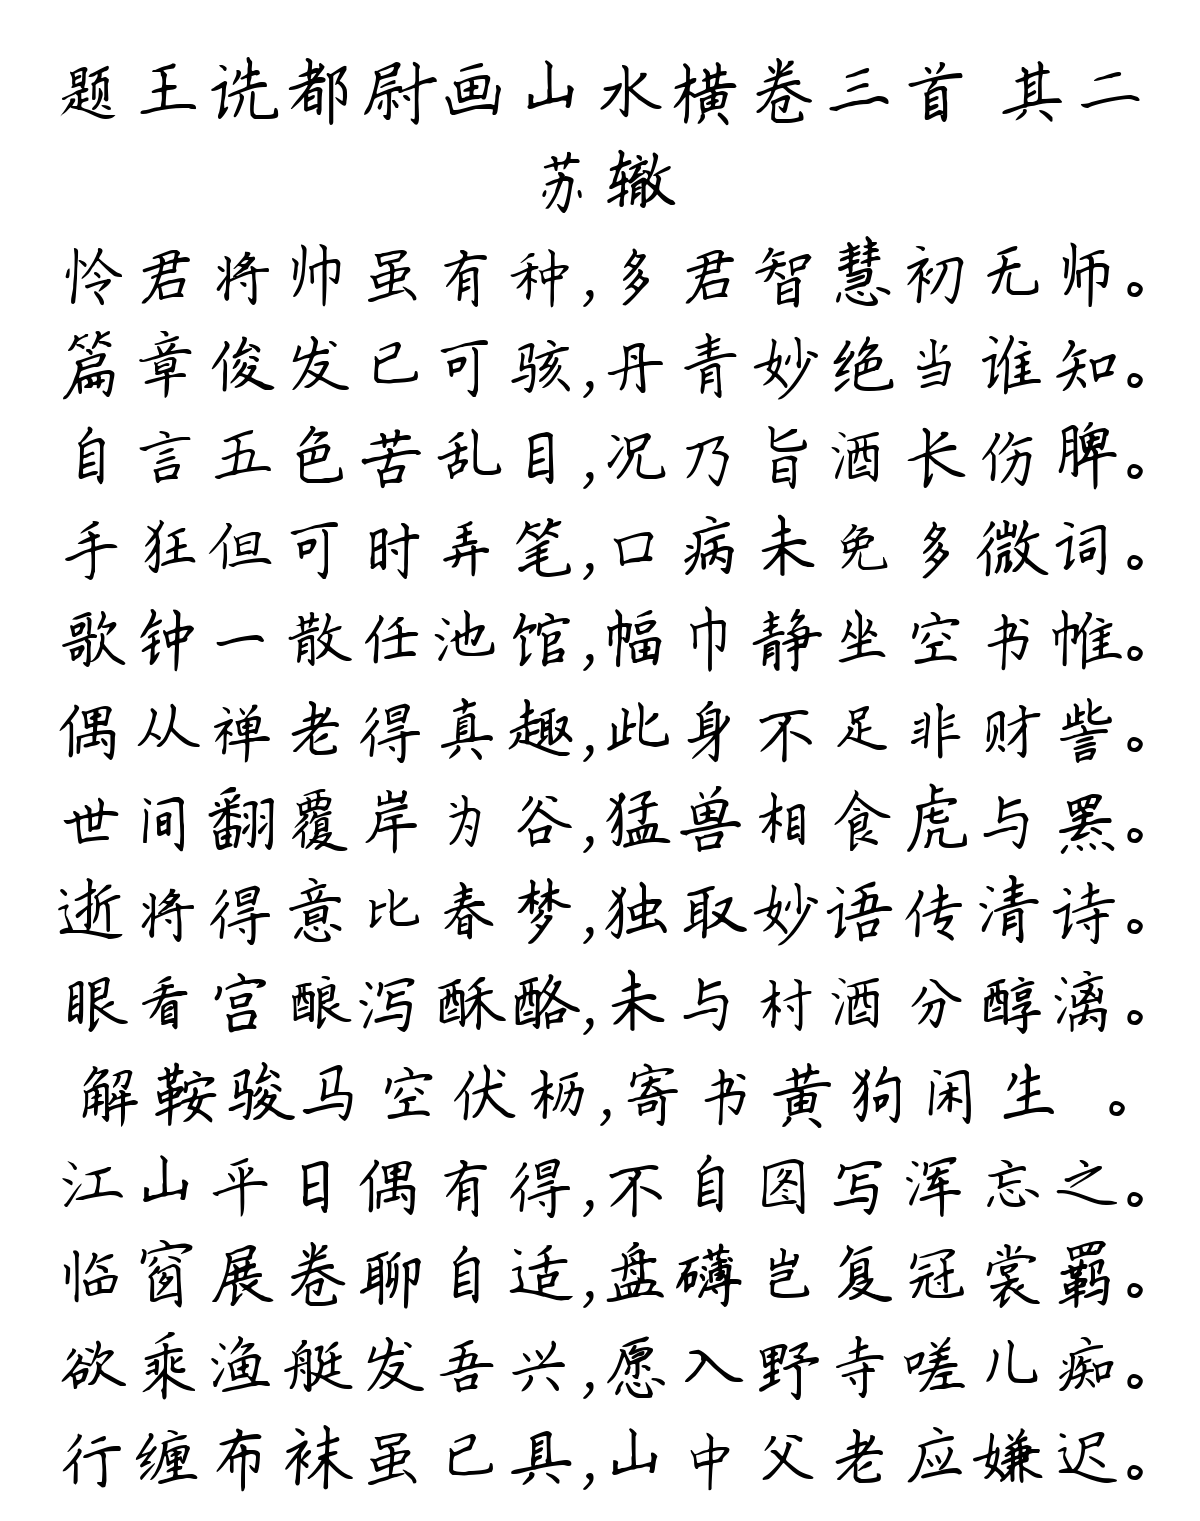 题王诜都尉画山水横卷三首 其二
苏辙
怜君将帅虽有种,多君智慧初无师。
篇章俊发已可骇,丹青妙绝当谁知。
自言五色苦乱目,况乃旨酒长伤脾。
手狂但可时弄笔,口病未免多微词。
歌钟一散任池馆,幅巾静坐空书帷。
偶从禅老得真趣,此身不足非财訾。
世间翻覆岸为谷,猛兽相食虎与罴。
逝将得意比春梦,独取妙语传清诗。
眼看宫酿泻酥酪,未与村酒分醇漓。
解鞍骏马空伏枥,寄书黄狗闲生 。
江山平日偶有得,不自图写浑忘之。
临窗展卷聊自适,盘礴岂复冠裳羁。
欲乘渔艇发吾兴,愿入野寺嗟儿痴。
行缠布袜虽已具,山中父老应嫌迟。